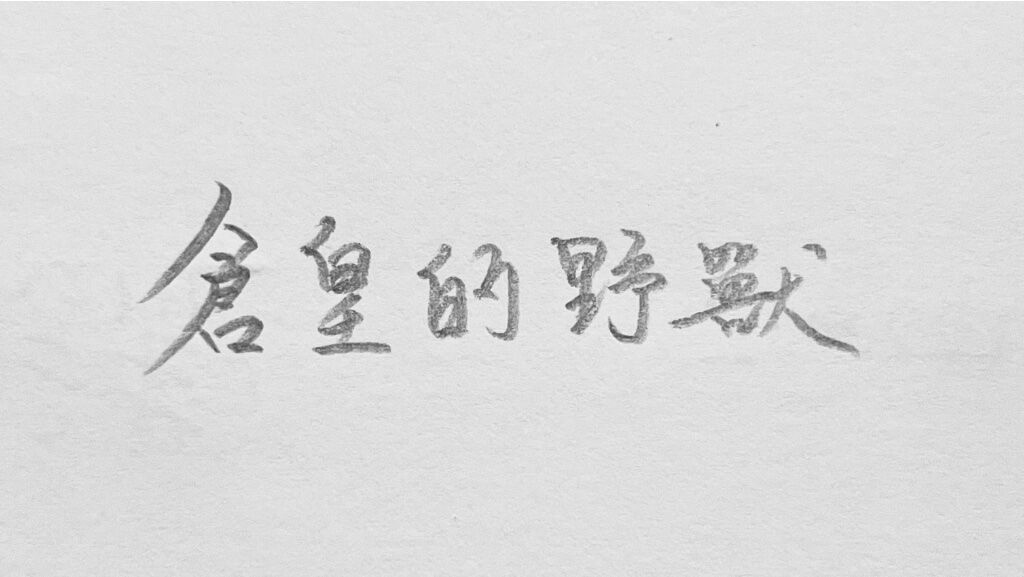 倉皇的野獸